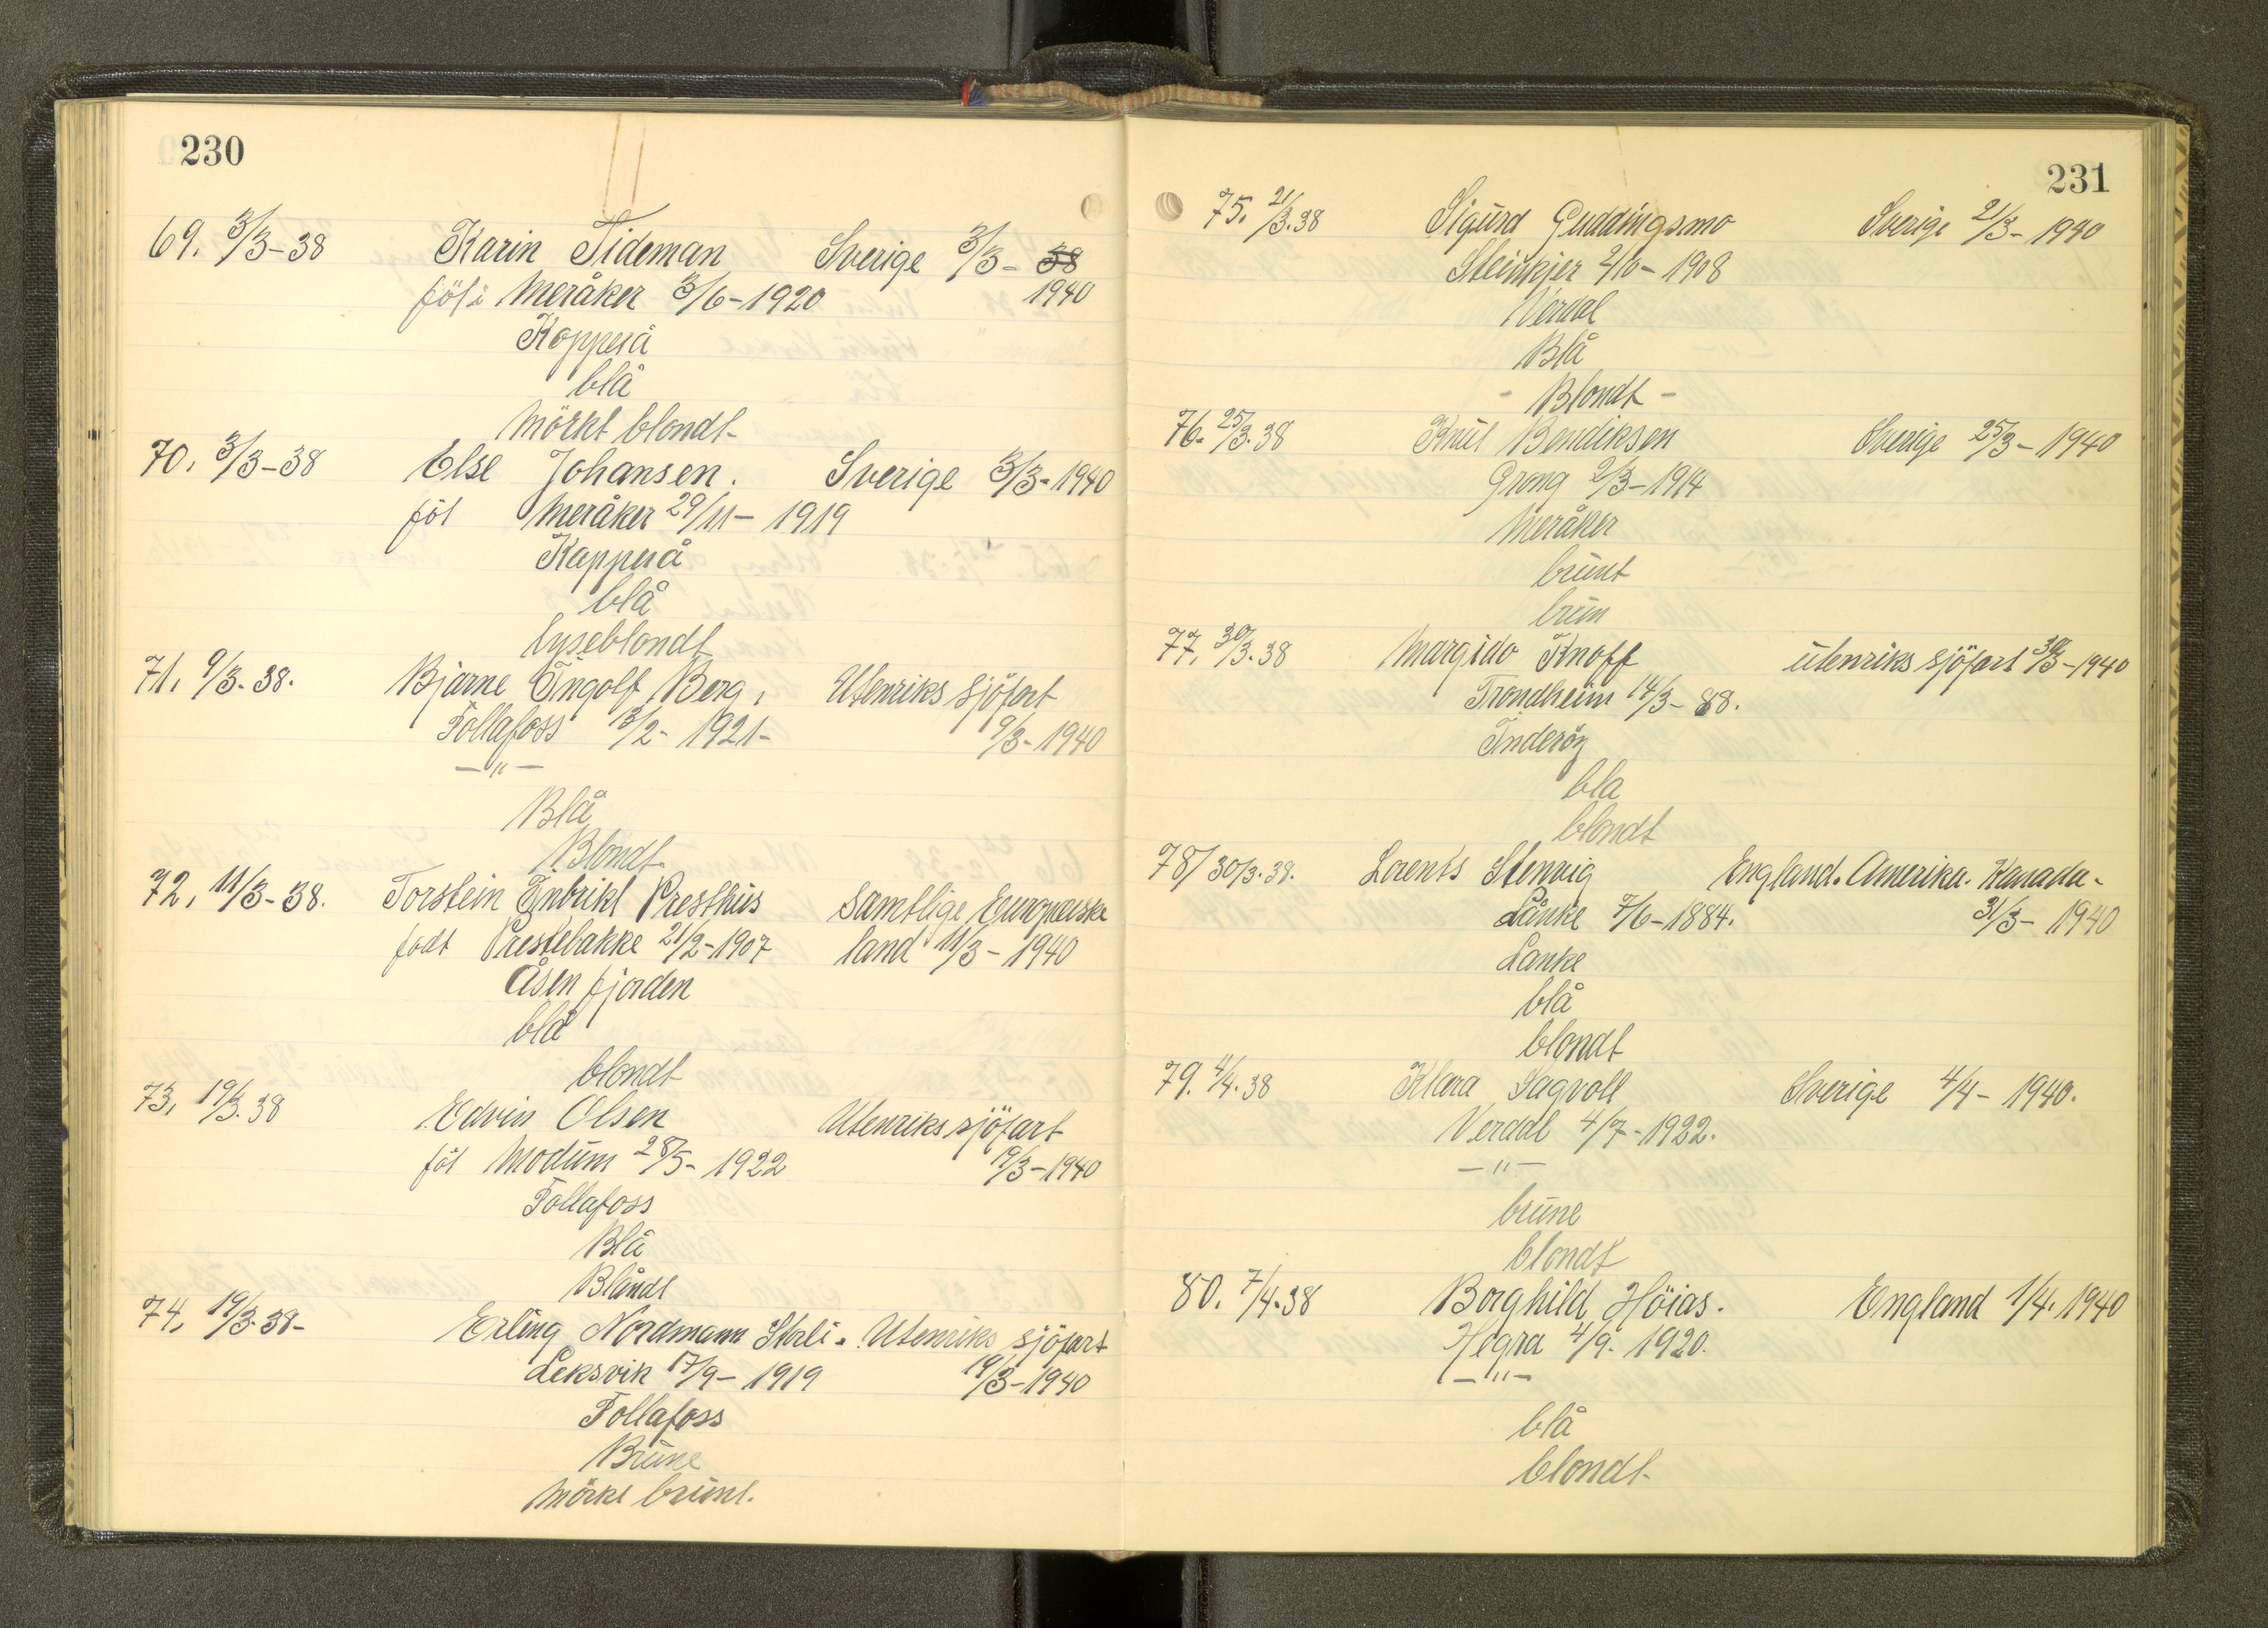 230
69. 3/3-38 Karin Tideman Sverige 3/3- 38
föt i Meråker 3/6-1920 1940
Kopperå
blå
Mörkt blondt-
70. 3/3-38 Else Johansen. Sverige 3/3-1940
föt Meråker 29/11- 1919
Kopperå
blå
lyseblondt
71. 9/3-38. Bjarne Ingolf Berg, Utenriks sjöfart
Follafoss 13/2- 1921- 9/3-1940
—"—
Blå
Blondt.
72. 11/3-38. Torstein Inbrikt Presthus Samtlige Europæiske
født Prestebakke 21/2-1907 land 11/3-1940
Åsen fjorden
blå
blondt
73. 19/3.38 Edvin Olsen Utenriks sjöfart
föt Modum 28/5- 1922 19/3-1940
Follafoss
Blå
Blåndt
74. 19/3.38- Erling Nordmann Utenriks sjöfart
Leksvik 17/9- 1919 19/3-1940
Follafoss
Brune
Mörke brunt.
231
75. 21/3.38 Sigurd Guddingsmo Sverige 21/3-1940
Steinkjer 2/10-1908
Verdal
Blå
- Blondt -
76. 25/3.38 Knut Bendiksen Sverige 25/3-1940
Grong 2/3-1914
Meråker
brunt
brun
77. 30/3.38 Margido Knoff utenriks sjöfart 30/3-1940
Trondheim 14/3-88.
Inderöy
bla
blondt
78/ 30/3.38. Lorents Stenvig England. Amerika. Kanada-
Lånke 7/6-1884. 31/3- 1940
Lanke
blå
blondt
79. 4/4.38 Klara Sagvoll Sverige 4/4- 1940.
Verdal 4/7-1922.
—"—
brune
blondt
80. 7/4.38 Borghild Höias. England 1/4. 1940
Hegra 4/9. 1920.
—"—
blå
blondt-